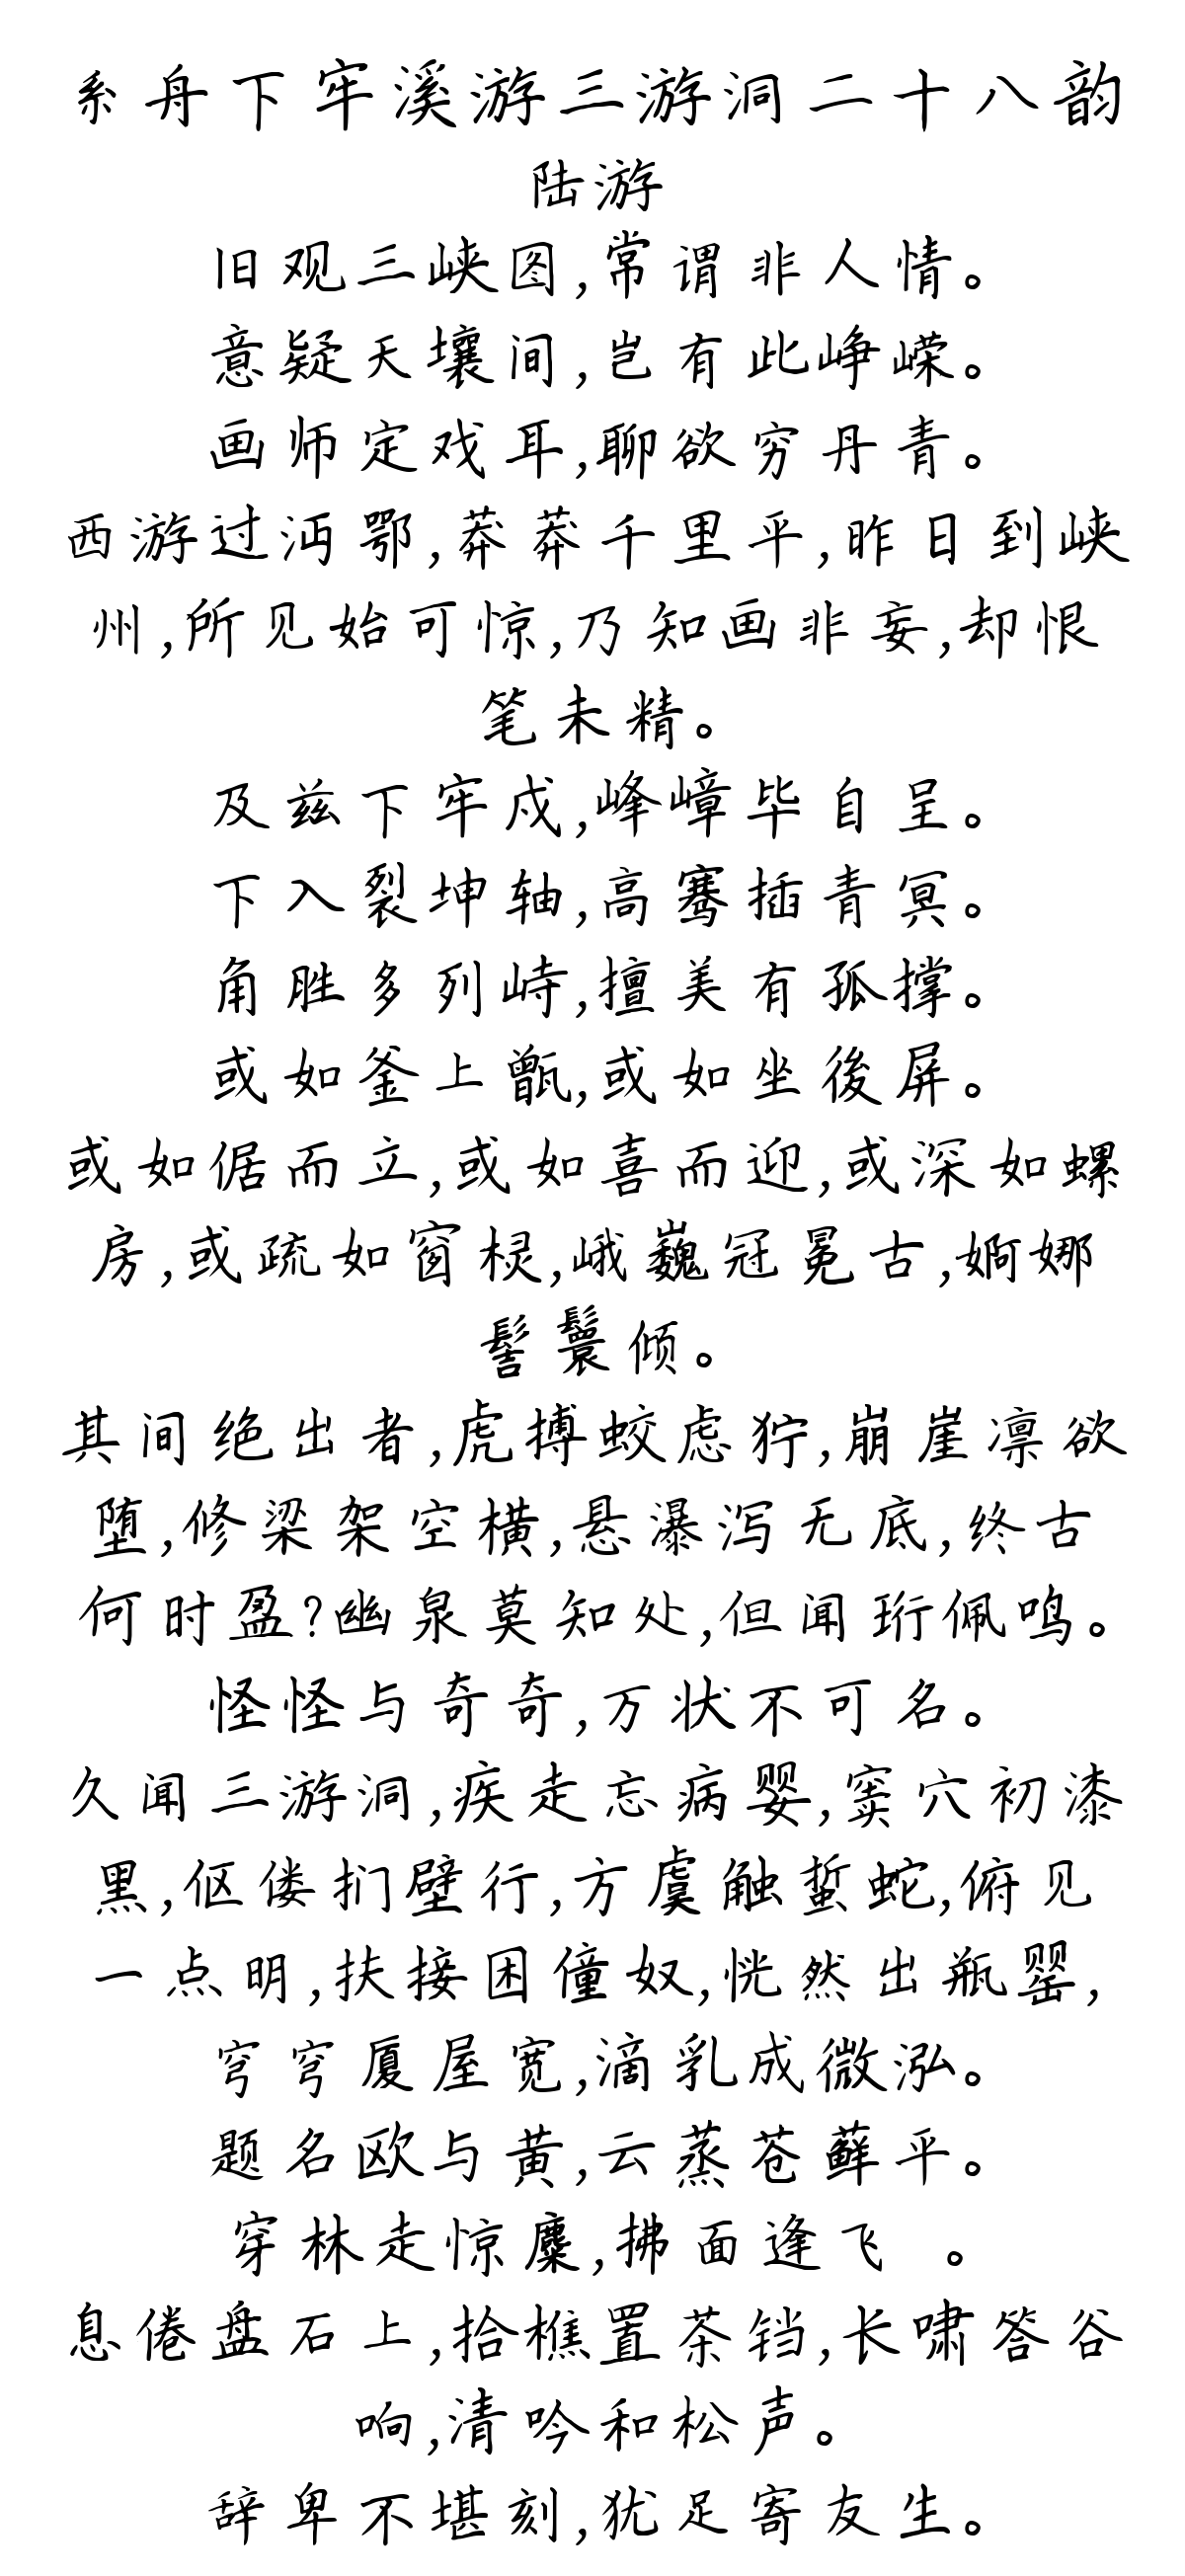 系舟下牢溪游三游洞二十八韵
陆游
旧观三峡图,常谓非人情。
意疑天壤间,岂有此峥嵘。
画师定戏耳,聊欲穷丹青。
西游过沔鄂,莽莽千里平,昨日到峡
州,所见始可惊,乃知画非妄,却恨
笔未精。
及兹下牢戍,峰嶂毕自呈。
下入裂坤轴,高骞插青冥。
角胜多列峙,擅美有孤撑。
或如釜上甑,或如坐後屏。
或如倨而立,或如喜而迎,或深如螺
房,或疏如窗棂,峨巍冠冕古,婀娜
髻鬟倾。
其间绝出者,虎搏蛟虑狞,崩崖凛欲
堕,修梁架空横,悬瀑泻无底,终古
何时盈?幽泉莫知处,但闻珩佩鸣。
怪怪与奇奇,万状不可名。
久闻三游洞,疾走忘病婴,窦穴初漆
黑,伛偻扪壁行,方虞触蜇蛇,俯见
一点明,扶接困僮奴,恍然出瓶罂,
穹穹厦屋宽,滴乳成微泓。
题名欧与黄,云蒸苍藓平。
穿林走惊麇,拂面逢飞 。
息倦盘石上,拾樵置茶铛,长啸答谷
响,清吟和松声。
辞卑不堪刻,犹足寄友生。